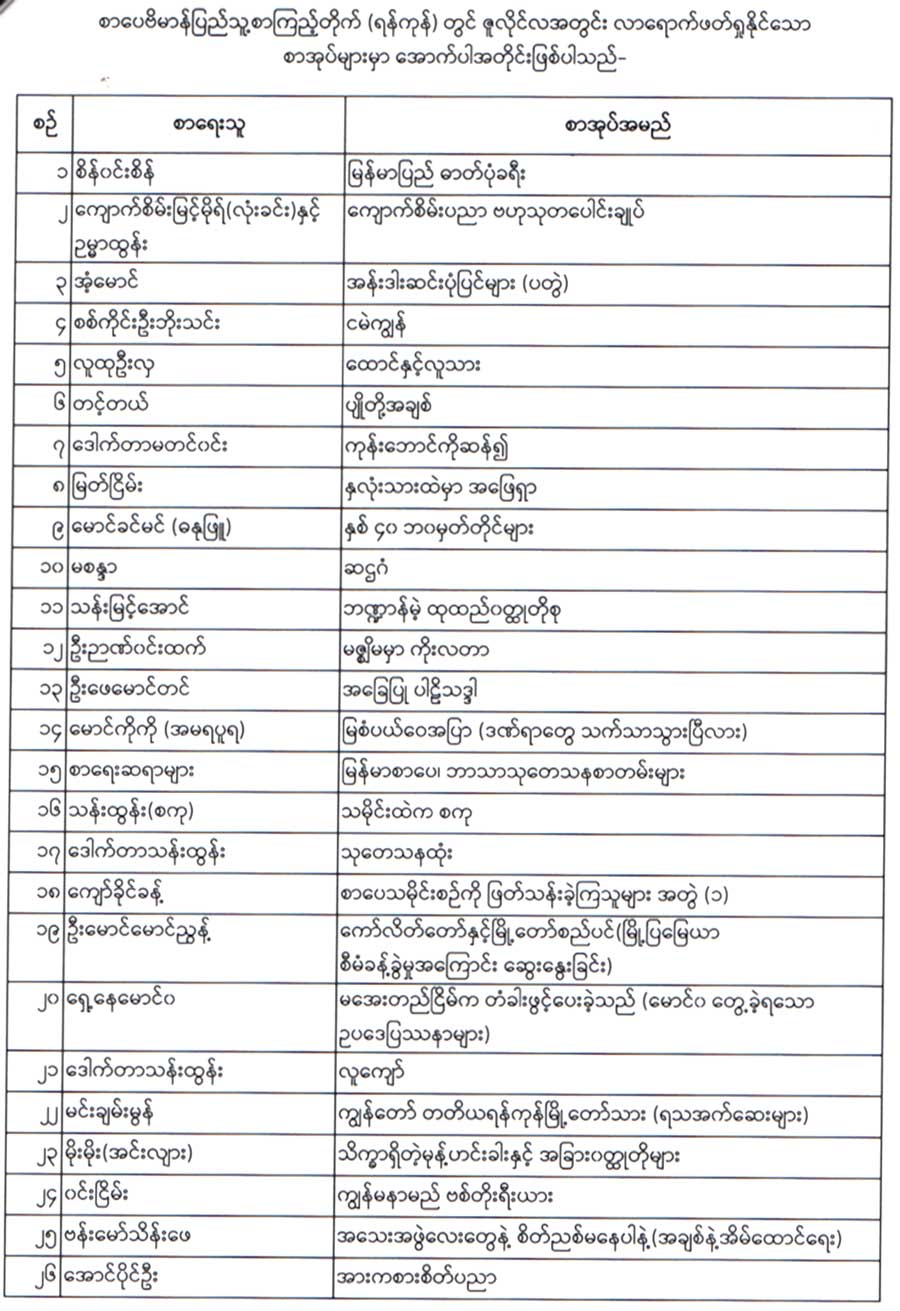 စာပေဗိမာန်ပြည်သူ့စာကြည့်တိုက် (ရန်ကုန်) တွင် ဇူလိုင်လအတွင်း လာရောက်ဖတ်ရှုနိုင်သော
စာအုပ်များမှာ အောက်ပါအတိုင်းဖြစ်ပါသည်-
စဉ် စာရေးသူ စာအုပ်အမည်
၁ စိန်ဝင်းစိန် မြန်မာပြည် ဓာတ်ပုံခရီး
၂ ကျောက်စိမ်းမြင့်မိုရ်(လုံးခင်း)နှင့် ကျောက်စိမ်းပညာ ဗဟုသုတပေါင်းချုပ်
ဥမ္မာထွန်း
၃ အုံ့မောင် အန်းဒါးဆင်းပုံပြင်များ (ပတွဲ)
၄ စစ်ကိုင်းဦးဘိုးသင်း ငမဲကျွန်
၅ လူထုဦးလှ ထောင်နှင့်လူသား
၆ တင့်တယ် ပျိုတို့အချစ်
၇ ဒေါက်တာမတင်ဝင်း ကုန်းဘောင်ကိုဆန်၍
၈ မြတ်ငြိမ်း နှလုံးသားထဲမှာ အဖြေရှာ
၉ မောင်ခင်မင် (ဓနုဖြူ) နှစ် ၄၀ ဘဝမှတ်တိုင်များ
၁၀ မစန္ဒာ ဆဋ္ဌဂံ
၁၁ သန်းမြင့်အောင် ဘဏ္ဍာန်မဲ့ ထုထည်ဝတ္ထုတိုစု
၁၂ ဦးဉာဏ်ဝင်းထက် မဇ္ဈိမမှာ ကိုးလတာ
၁၃ ဦးဖေမောင်တင် အခြေပြု ပါဠိသဒ္ဒါ
၁၄ မောင်ကိုကို (အမရပူရ) မြစံပယ်ဝေအပြာ (ဒဏ်ရာတွေ သက်သာသွားပြီလား)
၁၅ စာရေးဆရာများ မြန်မာစာပေ၊ ဘာသာသုတေသနစာတမ်းများ
၁၆ သန်းထွန်း(စကု) သမိုင်းထဲက စကု
၁၇ ဒေါက်တာသန်းထွန်း သုတေသနထုံး
၁၈ ကျော်ခိုင်ခန့် စာပေသမိုင်းစဉ်ကို ဖြတ်သန်းခဲ့ကြသူများ အတွဲ (၁)
၁၉ ဦးမောင်မောင်ညွန့် ကော်လိတ်တော်နှင့်မြို့တော်စည်ပင်(မြို့ပြမြေယာ
စီမံခန့်ခွဲမှုအကြောင်း ဆွေးနွေးခြင်း)
၂၀ ရှေ့နေမောင်ဝ မအေးတည်ငြိမ်က တံခါးဖွင့်ပေးခဲ့သည် (မောင်ဝ တွေ့ခဲ့ရသော
ဥပဒေပြဿနာများ)
၂၁ ဒေါက်တာသန်းထွန်း လူကျော်
၂၂ မင်းချမ်းမွန် ကျွန်တော် တတိယရန်ကုန်မြို့တော်သား (ရသအက်ဆေးများ)
၂၃ မိုးမိုး(အင်းလျား) သိက္ခာရှိတဲ့မုန့်ဟင်းခါးနှင့် အခြားဝတ္ထုတိုများ
၂၄ ဝင်းငြိမ်း ကျွန်မနာမည် ဗစ်တိုးရီးယား
၂၅ ဗန်းမော်သိန်းဖေ အသေးအဖွဲလေးတွေနဲ့ စိတ်ညစ်မနေပါနဲ့(အချစ်နဲ့အိမ်ထောင်ရေး)
၂၆ အောင်ပိုင်ဦး အားကစားစိတ်ပညာ